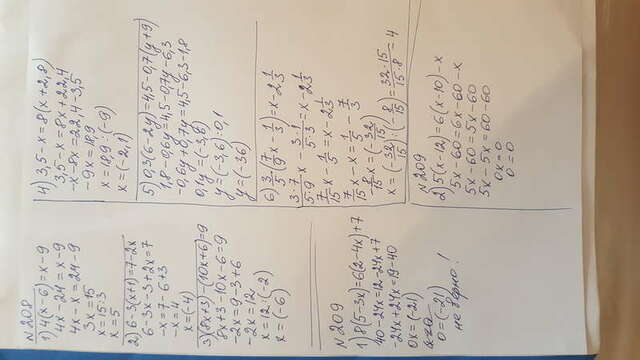 №208
1) 4(x-6)=x-9
4x-24=x-9
4x-x=24-9
3x=15
x=15:3
x=5
2) 6-3(x+1)=7-2x
6-3x-3+2x=7
-x=7-6+3
-x=4
x=(-4)
3) (8x+3)-(10x+6)=9
8x+3-10x-6=9
-2x=9-3+6
-2x=12
x=12:(-2)
x=(-6)
№209
1) 8(5-3x)=6(2-4x)+7
40-24x=12-24x+7
-24x+24x=19-40
0x=(-21)
0=(-21)
неверно!
4) 3,5-x=8(x+2,8)
3,5-x=8x+22,4
-x-8x=22,4-3,5
-9x=18,9
x=18,9:(-9)
x=(-2,1)
5) 0,3(6-2y)=4,5-0,7(y+9)
1,8-0,6y=4,5-0,7y-6,3
-0,6y+0,7y=4,5-6,3-1,8
0,1y=(-3,6)
y=(-3,6):0,1
y=(-36)
6) 3/5(7/9x-1/3)=x-2 1/3
3·7/5·9x-3·1/5·3=x-2 1/3
7/15x-1/5=x-2 1/3
7/15x-x=1/5-7/3
-8/15x=(-32/15)
x=(-32/15):(-8/15)=32·15/15·8=4
№209
2) 5(x-12)=6(x-10)-x
5x-60=6x-60-x
5x-60=5x-60
5x-5x=60-60
0x=0
0=0